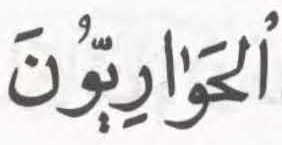 اُلحَوَارِيُّونَ